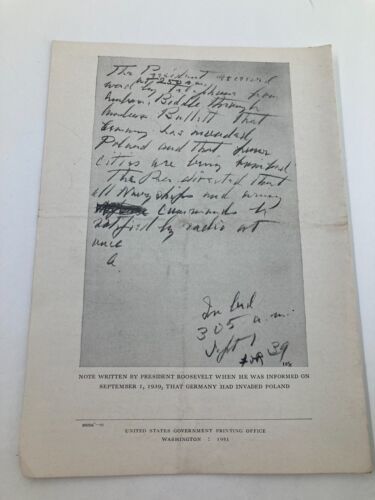 The President received
word at 2:50 a.m.
by telephone from
Ambas. Biddle through
Ambas. Bullitt that
Germany has invaded
Poland and that four
cities are being bombed
The Pres. directed that
all Navy ships and army
commands be
notified by radio at
once
In bed
3 05 a.m.
Sept 1
39
FDR
NOTE WRITTEN BY PRESIDENT ROOSEVELT WHEN HE WAS INFORMED ON
SEPTEMBER 1, 1939, THAT GERMANY HAD INVADED POLAND
UNITED STATES GOVERNMENT PRINTING OFFICE
WASHINGTON : 1951